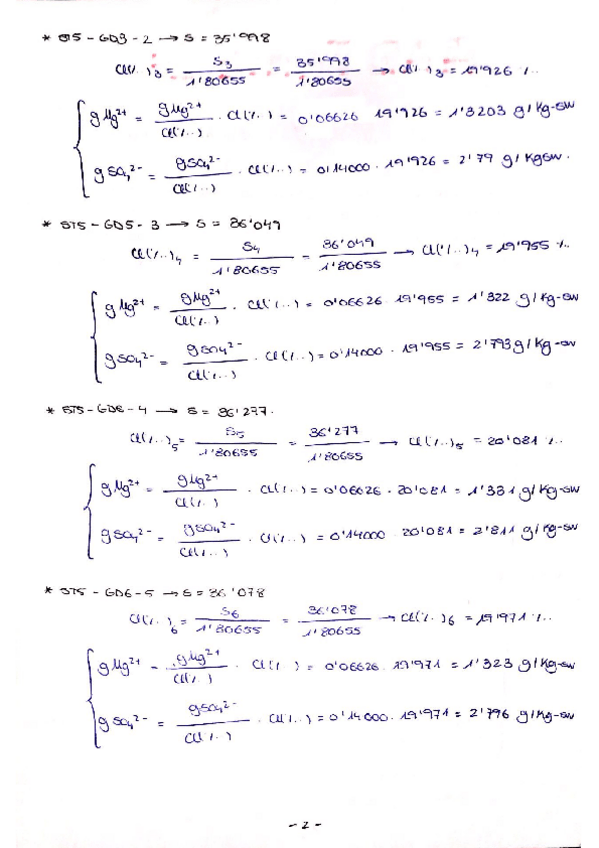 * ST5 - GD3 - 2 → S = 35'998
Cl(‰)3 = S3 / 1'80655 = 35'998 / 1'80655 → Cl(‰)3 = 19'926 ‰
g Mg2+ = g Mg2+ / Cl(‰) · Cl(‰) = 0'06626 19'926 = 1'3203 g/Kg-sw
g SO42- = g SO42- / Cl(‰) · Cl(‰) = 0'14000 · 19'926 = 2'79 g/Kgsw.
* ST5 - GD5 - 3 → S = 36'049
Cl(‰)4 = S4 / 1'80655 = 36'049 / 1'80655 → Cl(‰)4 = 19'955 ‰
g Mg2+ = g Mg2+ / Cl(‰) · Cl(‰) = 0'06626 · 19'955 = 1'322 g/Kg-sw
g SO42- = g SO42- / Cl(‰) · Cl(‰) = 0'14000 · 19'955 = 2'793 g/Kg-sw
* ST5 - GD6 - 4 → S = 36'277.
Cl(‰)5 = S5 / 1'80655 = 36'277 / 1'80655 → Cl(‰)5 = 20'081 ‰
g Mg2+ = g Mg2+ / Cl(‰) · Cl(‰) = 0'06626 · 20'081 = 1'331 g/Kg-sw
g SO42- = g SO42- / Cl(‰) · Cl(‰) = 0'14000 · 20'081 = 2'811 g/Kg-sw
* ST5 - GD6 - 5 → S = 36'078
Cl(‰)6 = S6 / 1'80655 = 36'078 / 1'80655 → Cl(‰)6 = 19'971 ‰
g Mg2+ = g Mg2+ / Cl(‰) · Cl(‰) = 0'06626 · 19'971 = 1'323 g/Kg-sw
g SO42- = g SO42- / Cl(‰) · Cl(‰) = 0'14000 · 19'971 = 2'796 g/Kg-sw
- 2 -